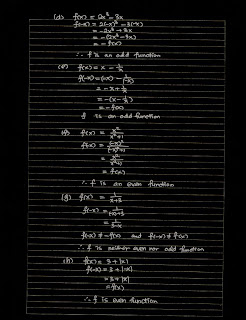 (d) f(x) = 2x³ - 3x
f(-x) = 2(-x)³ - 3(-x)
= -2x³ + 3x
= -(2x³ - 3x)
= - f(x)
∴ f is an odd function
(e) f(x) = x - 1/x
f(-x) = (-x) - 1/(-x)
= -x + 1/x
= -(x - 1/x)
= - f(x)
f is an odd function
(f) f(x) =
= f(x)
∴ f is an even function
(g) f(x) = 1/(x+3)
f(-x) = 1/(-x+3)
= 1/(3-x)
f(-x) ≠ -f(x) and f(-x) ≠ f(x)
∴ f is neither even nor odd function
(h) f(x) = 3 + |x|
f(-x) = 3 + |-x|
= 3 + |x|
= f(x)
∴ f is even function